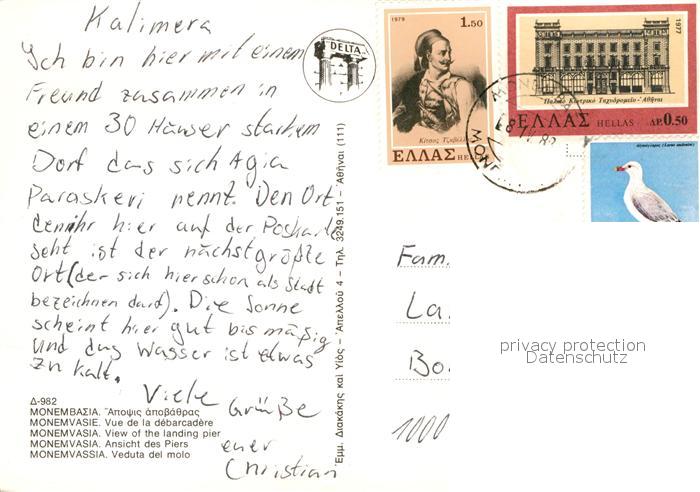 Kalimera
Ich bin hier mit einem
Freund zusammen in
einem 30 Häuser starkem
Dorf das sich Agia
Paraskevi nennt. Den Ort
den ihr hier auf der Poskarte
seht ist der nächstgrößte
Ort (der sich hier schon als Stadt
bezeichnen darf). Die Sonne
scheint hier gut bis mäßig
und das Wasser ist etwas
zu kalt.
Viele
Grüße
euer
Christian
Δ-982
ΜΟΝΕΜΒΑΣΙΑ. Ἄποψις ἀποβάθρας
MONEMVASIE. Vue de la débarcadère
MONEMVASIA. View of the landing pier
MONEMVASIA. Ansicht des Piers
MONEMVASSIA. Veduta del molo
DELTA
Ἐμμ. Διακάκης καὶ Υἱός - Ἀπελλοῦ 4 - Τηλ. 3249.151 - Ἀθῆναι (111)
1979
1.50
Κίτσος Τζαβέλας
ΕΛΛΑΣ HELLAS
1977
Παλαιό Κεντρικό Ταχυδρομείο - Ἀθῆναι
ΕΛΛΑΣ HELLAS ΔΡ. 0.50
(Larus audouinii)
Fam.
La.
Bo.
1000
privacy protection
Datenschutz